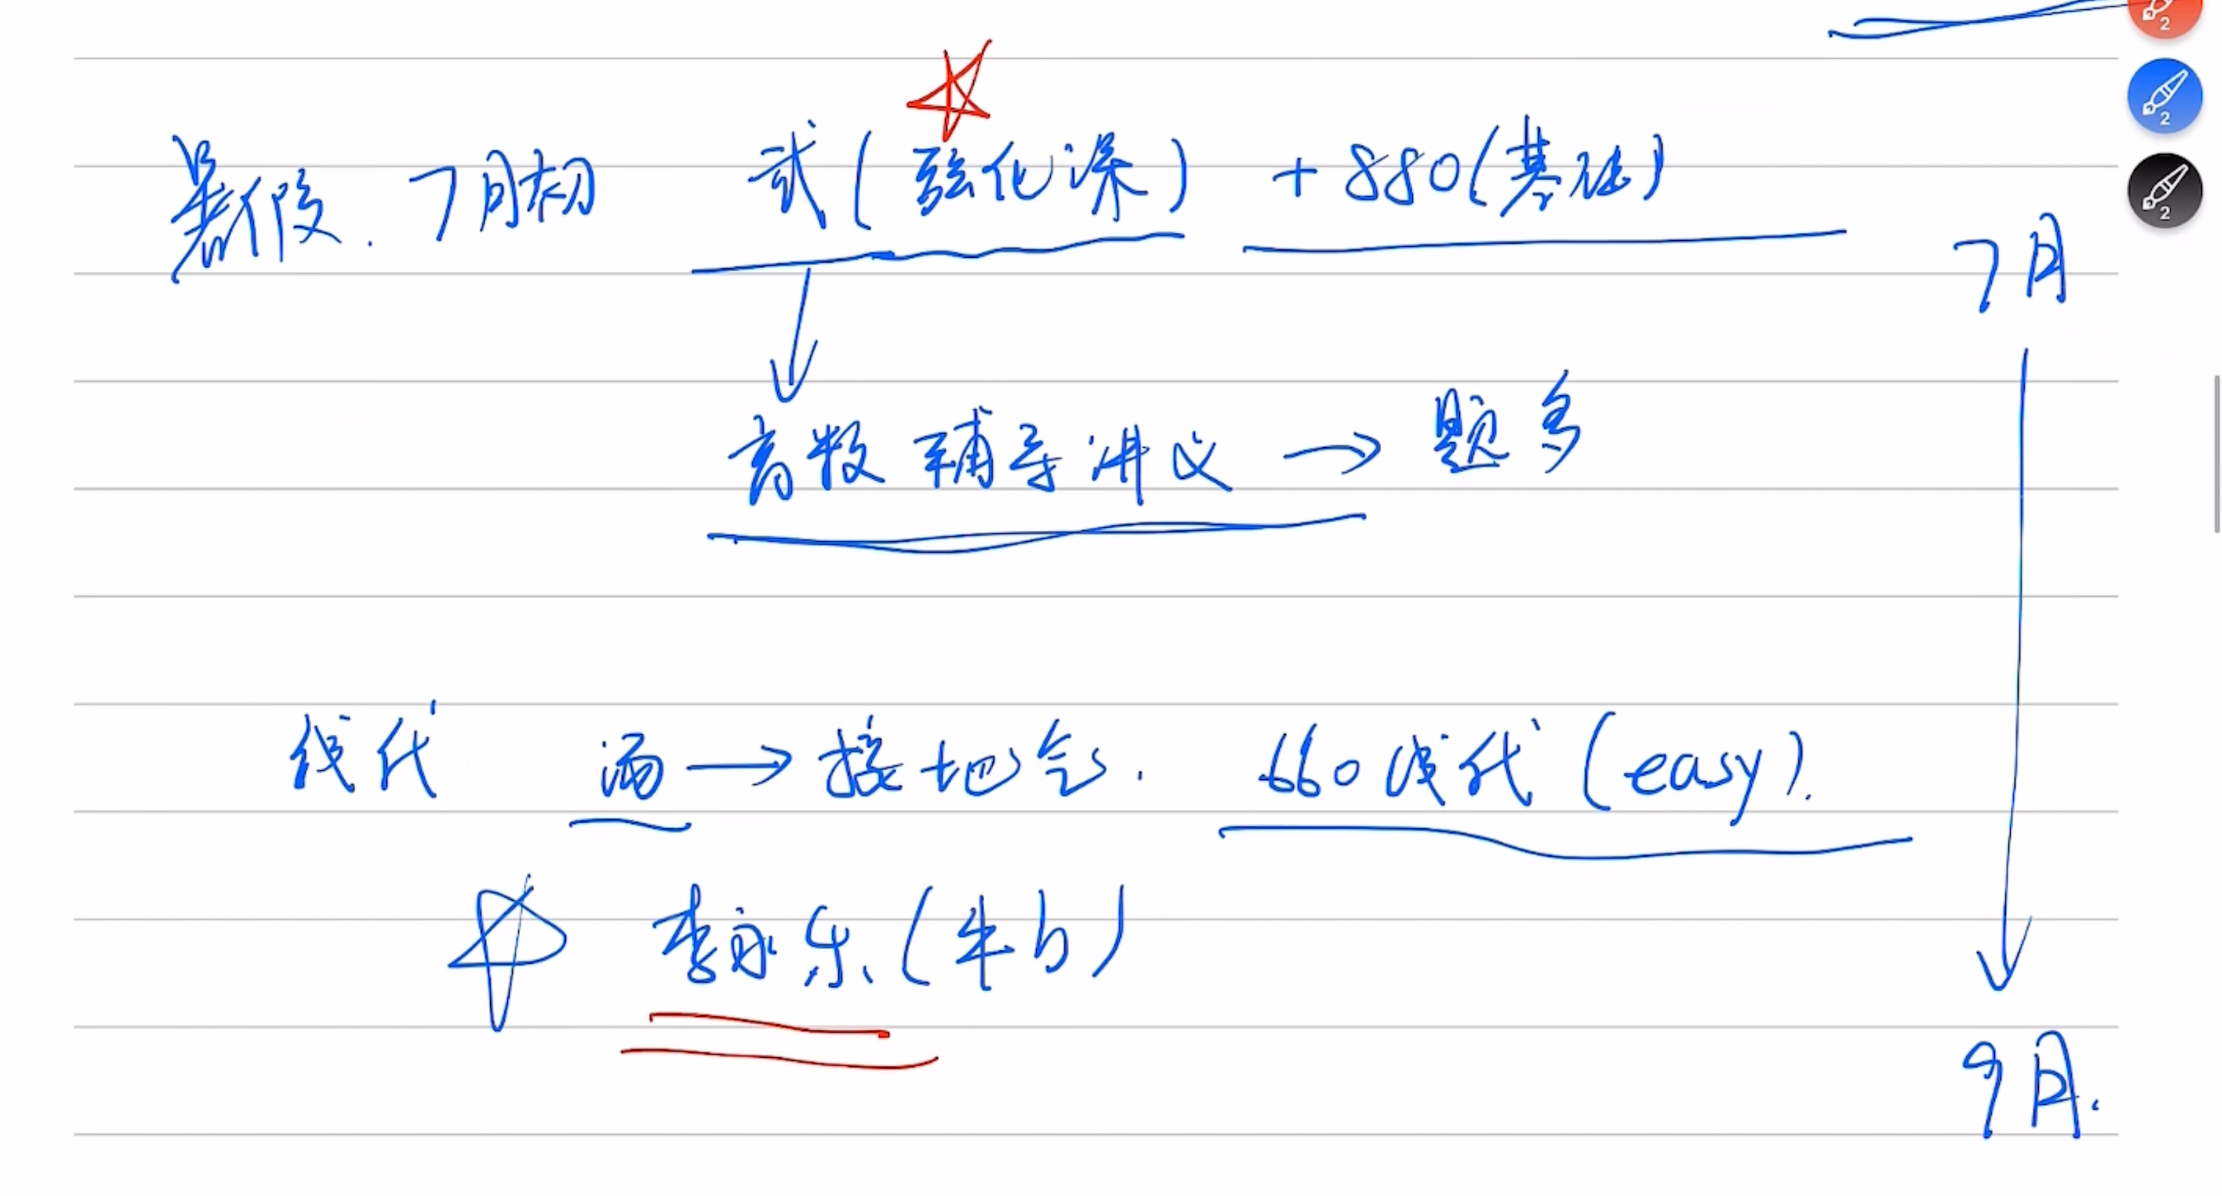 暑假. 7月初 武(强化课) +880(基础)
7月
高数辅导讲义 → 题多
线代 汤 → 接地气. 660线代(easy).
李永乐(牛b)
9月.
2
2
2